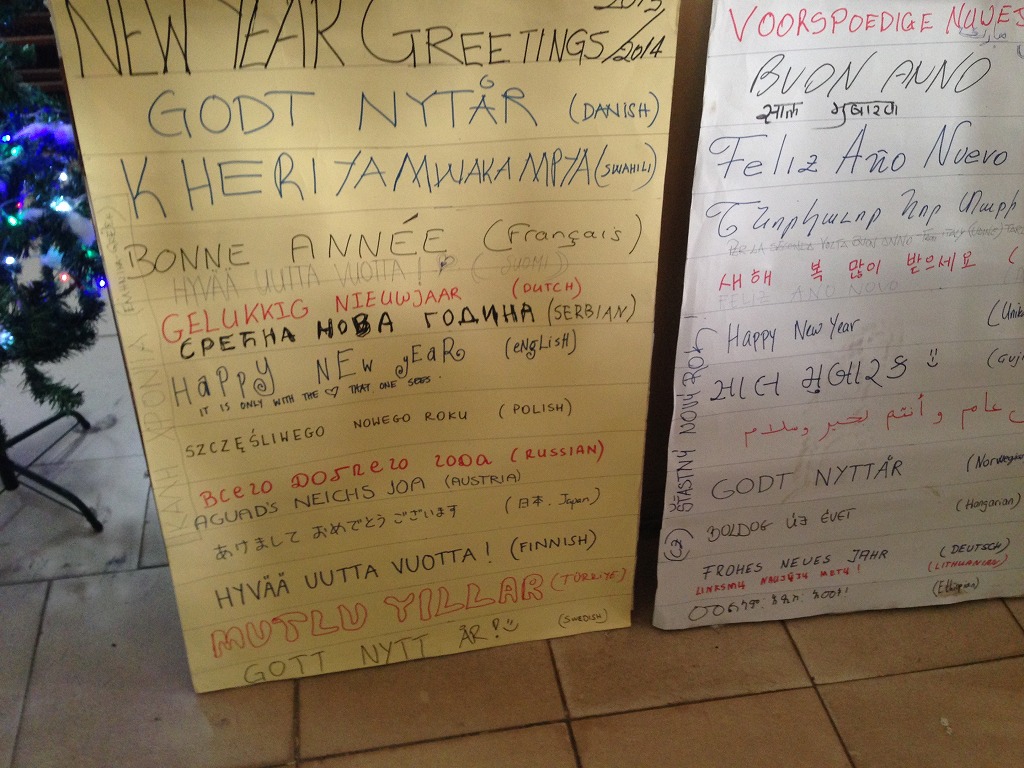 2013/
NEW YEAR GREETINGS 2014
GODT NYTÅR (DANISH)
KHERI YA MWAKA MPYA (SWAHILI)
BONNE ANNÉE (Français)
HYVÄÄ UUTTA VUOTTA! (SUOMI)
GELUKKIG NIEUWJAAR (DUTCH)
СРЕЋНА НОВА ГОДИНА (SERBIAN)
HaPPy NEw yEaR (eNgLisH)
IT IS ONLY WITH THE ♡ THAT ONE SEES.
SZCZĘŚLIWEGO NOWEGO ROKU (POLISH)
Всего доброго года (RUSSIAN)
AGUAD'S NEICHS JOA (AUSTRIA)
あけまして おめでとう ございます (日本. Japan)
HYVÄÄ UUTTA VUOTTA! (FINNISH)
MUTLU YILLAR (TÜRKIYE)
GOTT NYTT ÅR! (SWEDISH)
VOORSPOEDIGE NUWE
BUON ANNO
साल मुबारक
Feliz Año Nuevo
Շնորհավոր Նոր Տարի
새해 복 많이 받으세요 (
FELIZ ANO NOVO
Happy New Year
સાલ મુબારક (Guj
عام و أنتم بخير وسلام
GODT NYTTÅR (Norwegian
BOLDOG ÚJ ÉVET (Hangarian)
FROHES NEUES JAHR (DEUTSCH)
LINKSMŲ NAUJŲJŲ METŲ! (LITHUANIAN)
(Ethiopian)
(CZ) ŠŤASTNÝ NOVÝ ROK!